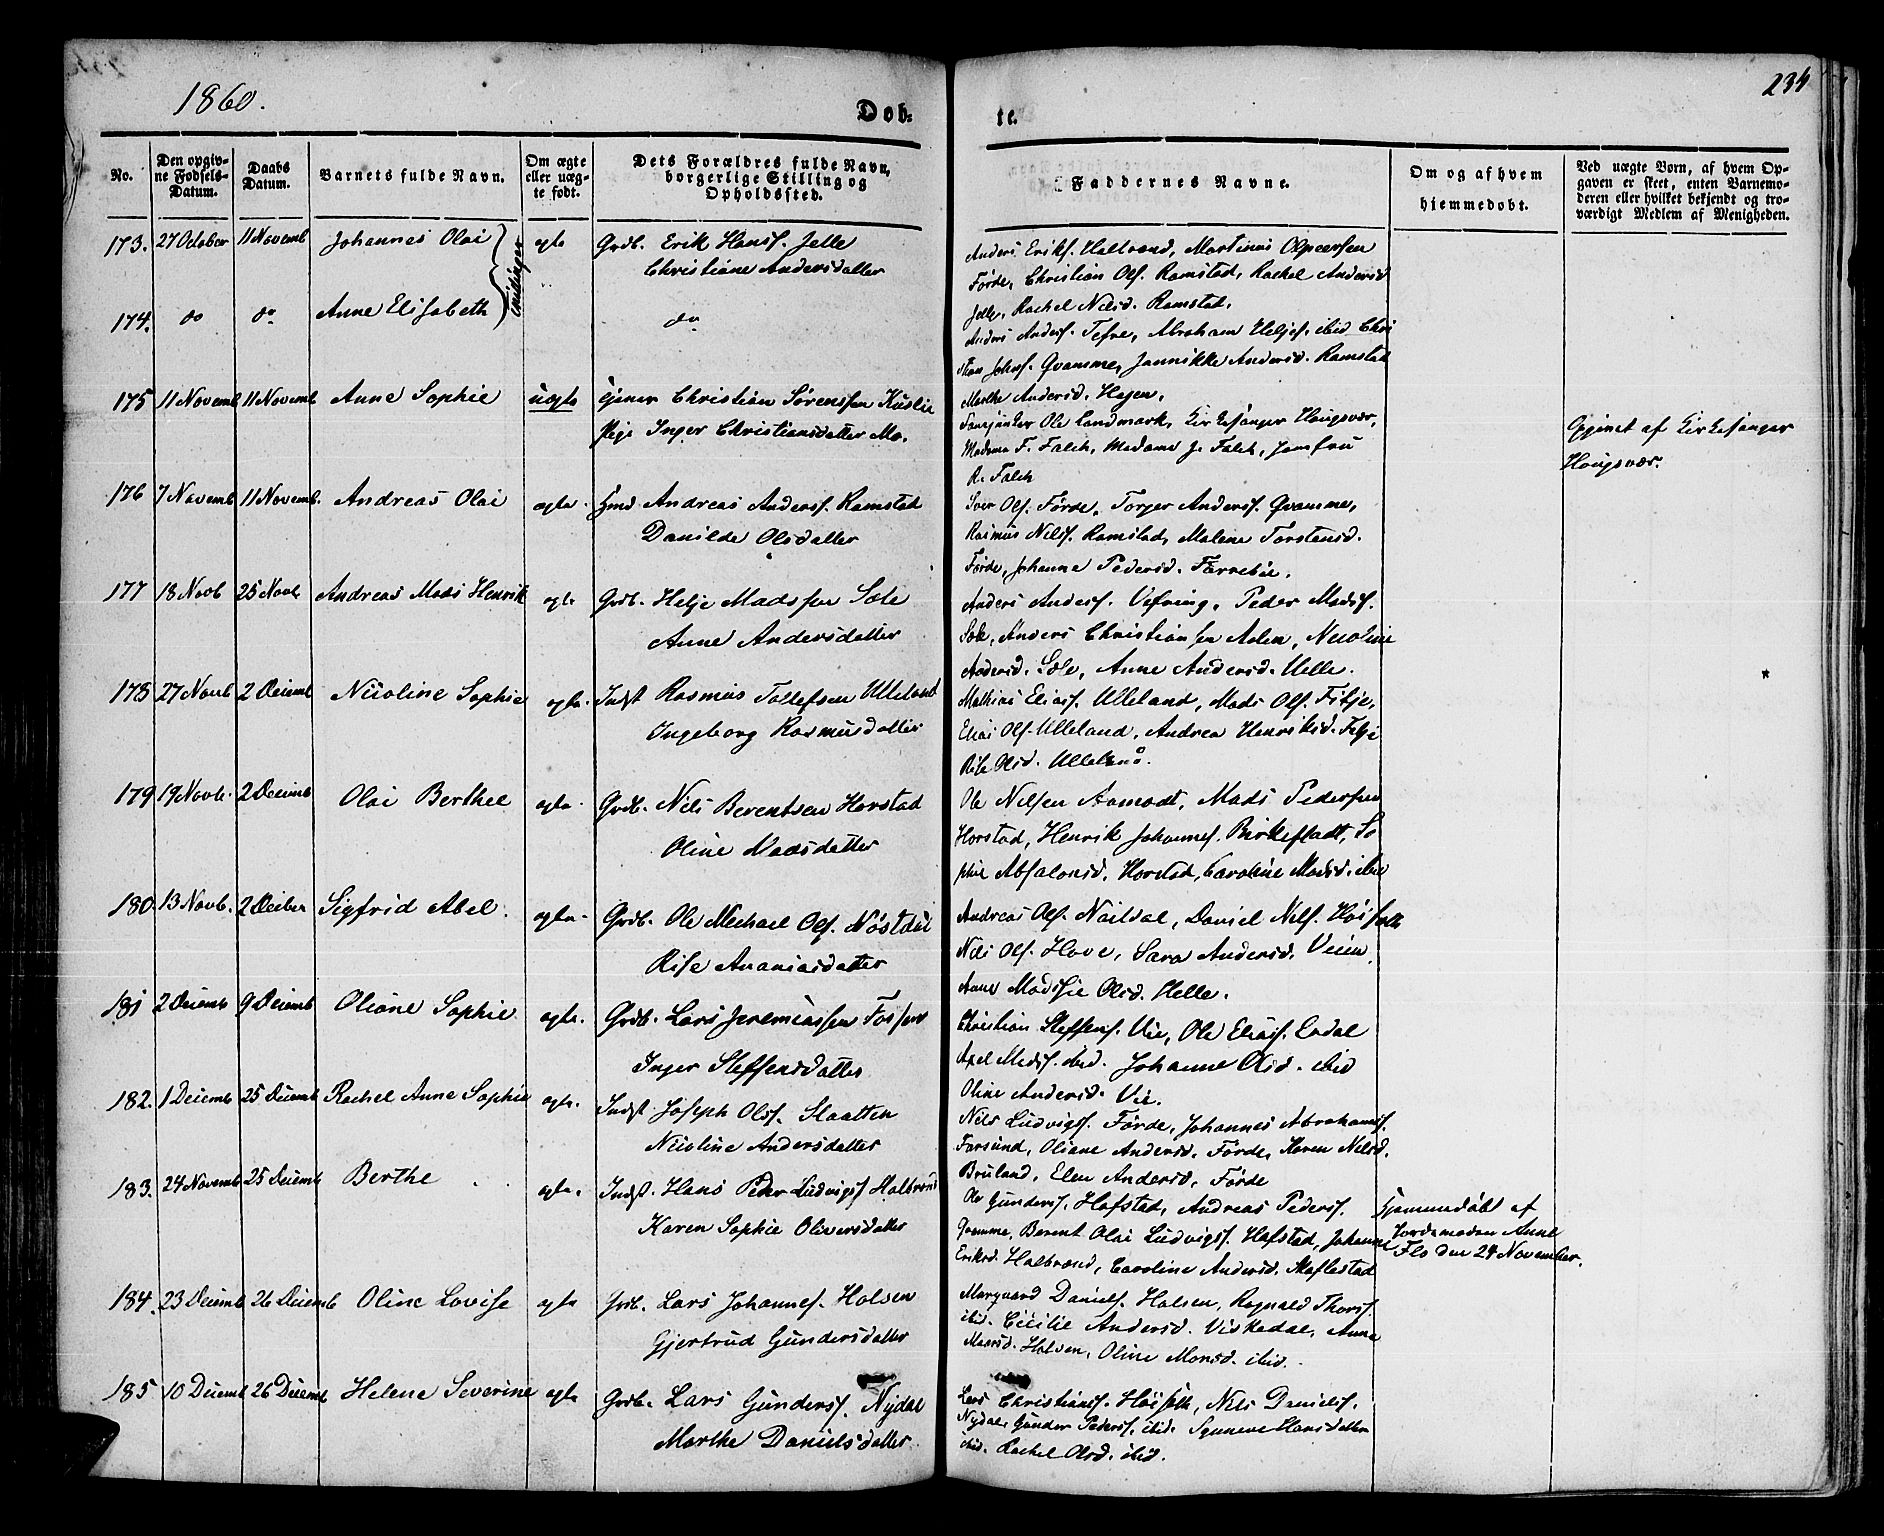 1860.
Døb-
te.
234
No.
Den opgiv-
ne Fødsels-
Datum.
Daabs
Datum.
Barnets fulde Navn.
Om ægte
eller uæg-
te født.
Dets Forældres fulde Navn,
borgerlige Stilling og
Opholdssted.
Faddernes Navne.
Om og af hvem
hjemmedøbt.
Ved uægte Børn, af hvem Op-
gaven er skeet, enten Barnemo-
deren eller hvilket bekjendt og tro-
værdigt Medlem af Menigheden.
173. 27 October 11 Novemb Johannes Olai ægte Grdb. Erik Hansf. Jelle
Christiane Andersdatter
Tvillinger
Anders Eriksf. Halbrænd, Martinus
Førde, Christian Olf. Ramstad, Rachel Andersd
Jelle, Rachel Nilsd. Ramstad.
174. do do Anne Elisabeth do
Anders Andersf. Tefre, Abraham Heljef. ibid Chri
stian Johsf. Qvamme, Jannikke Andersd. Ramstad
Marthe Andersd. Hafen.
175 11 Novemb 11 Novemb Anne Sophie uægte Christian Sørenssen Kuslie
Pige Inger Christiansdatter Mo.
Ole Landmark, Kirkesanger Hougsvær,
Madame F. Falch, Madame J. Falch, Jomfru
R. Falch
Opgivet af Kirkesanger
Hougsvær.
176 7 Novemb 11 Novemb. Andreas Olai ægte. Hmd Andreas Andersf. Ramstad
Danilde Olsdatter
Siver Olf. Førde, Torger Andersf. Qvamme,
Rasmus Nilsf. Ramstad, Malene Torstensd.
Førde, Johanne Pedersd. Farsebøe.
177 18 Novb 25 Novb Andreas Mads Henrik ægte Grdb. Helje Madssen Sole
Anne Andersdatter
Anders Andersf. Vefring, Peder Madsf.
Sole, Anders Christiansen Aslen, Nicoline
Andersd. Sole, Anne Andersd. Helle.
178 27 Novb 2 Decemb Nicoline Sophie ægte. Indst Rasmus Tollefsen Ulleland
Ingeborg Rasmusdatter
Mathias Eliasf. Ulleland, Mads Olf. Fitje,
Elias Olf. Ulleland, Andrea Henriksd. Fitje
Rise Olsd. Ulleland.
179 19 Novb. 2 Decemb Olai Berthel ægte. Grdb. Nils Berentsen Horstad
Oline Madsdatter
Ole Nilsen Aamodt, Mads Pederssen
Horstad, Henrik Johannesf. Birkestadt, So
phie Absalonsd. Horstad, Caroline Madsd. ibid
180. 13 Novb. 2 Decber Sigfrid Abel. ægte. Grdb. Ole Michael Olf. Nøstdal
Rise Ananiasdatter
Andreas Olf. Nøstdal, Daniel Nilsf. Høisæth
Nils Olf. Hove, Sara Andersd. Veien,
Anne Olsd. Helle.
181 2 Decemb 9 Decemb Oliane Sophie ægte. Grdb. Lars Jeremiassen Fossen
Inger Steffensdatter
Christian Steffensf. Vie, Ole Eliasf. Erdal
Axel Madsf. ibid. Johanne Olsd. ibid
Oline Andersd. Vie.
182. 1 Decemb 25 Decemb Rachel Anne Sophie ægte. Indst. Joseph Olsf. Slaatten
Nicoline Andersdatter
Nils Ludvigsf. Førde, Johannes Abrahamsf.
Farsund, Oliane Andersd. Førde, Karen Nilsd.
Bruland, Elen Andersd. Førde
183. 24 Novemb 25 Decemb Berthe ægte. Indst. Hans Peder Ludvigsf Halbrænd
Karen Sophie Oliversdatter
Ole Gundersf. Hafstad, Andreas Pedersf.
Qvamme, Berent Olai Ludvigsf. Hafstad, Johanne
Eriksd. Halbrænd, Caroline Andersd. Steflestad
Hjemmedøbt af
Jordemoden Anne
Flo den 24 November.
184. 23 Decemb 26 Decemb Oline Lovise ægte Grdb. Lars Johannesf. Halsen
Gjertrud Gundersdatter
Marqvard Danielsf. Halsen, Ragnald Thorsf.
ibid. Cicilie Andersd. Viskedal, Anne
Monsd. Halsen, Oline Monsd. ibid.
185 10 Decemb 26 Decemb Helene Severine ægte Grdb. Lars Gundersf. Nydal
Marthe Danielsdatter
Lars Christiansf. Høisæth, Nils Danielsf.
Nydal, Gunder Pedersf. ibid. Synneve Hansdatter
ibid. Rachel Olsd. ibid.